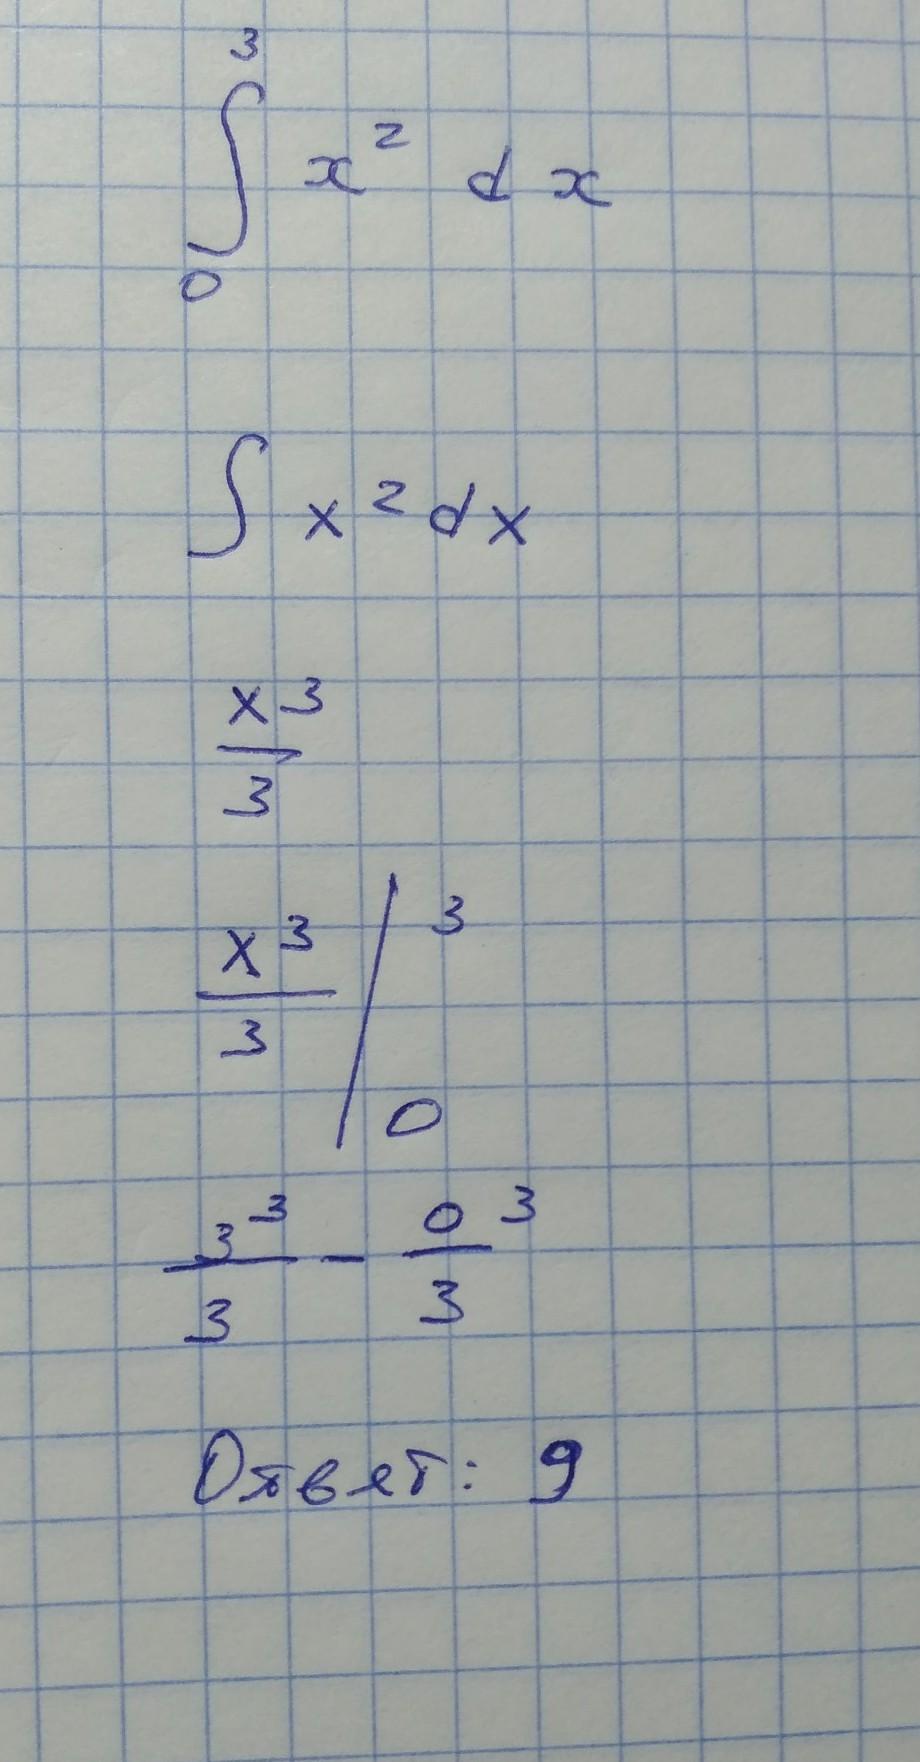 ∫₀³ x² dx
∫ x² dx
x³/3
x³/3 |₀³
3³/3 - 0³/3
Ответ: 9